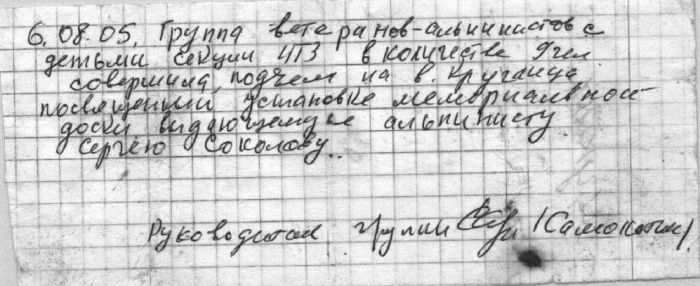 6.08.05. Группа ветеранов-альпинистов с
детьми секции ЧТЗ в количестве 9чел
совершила подъем на в. Круглица,
посвященный установке мемориальной
доски выдающемуся альпинисту
Сергею Соколову.
Руководитель группы